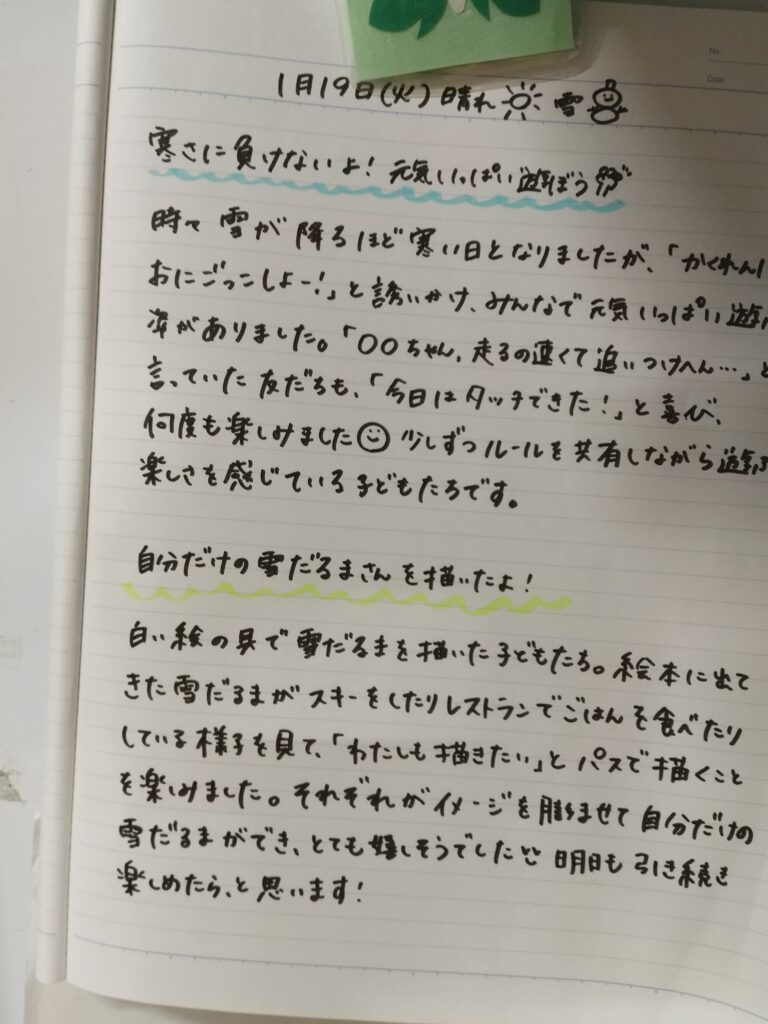 No.
Date
1月19日(火) 晴れ 雪
寒さに負けないよ! 元気いっぱい遊ぼう
時々 雪が 降るほど寒い日となりましたが、「かくれん
おにごっこしよー!」と誘いかけ、みんなで元気いっぱい遊
姿がありました。「〇〇ちゃん、走るの速くて追いつけへん…」と
言っていた友だちも、「今日はタッチできた!」と喜び、
何度も楽しみました 少しずつルールを共有しながら遊ぶ
楽しさを感じている子どもたちです。
自分だけの雪だるまさんを描いたよ!
白い絵の具で雪だるまを描いた子どもたち。絵本に出て
きた雪だるまがスキーをしたりレストランでごはんを食べたり
している様子を見て、「わたしも描きたい」とパスで描くこと
を楽しみました。それぞれがイメージを膨らませて自分だけの
雪だるまができ、とても嬉しそうでした 明日も引き続き
楽しめたら、と思います!